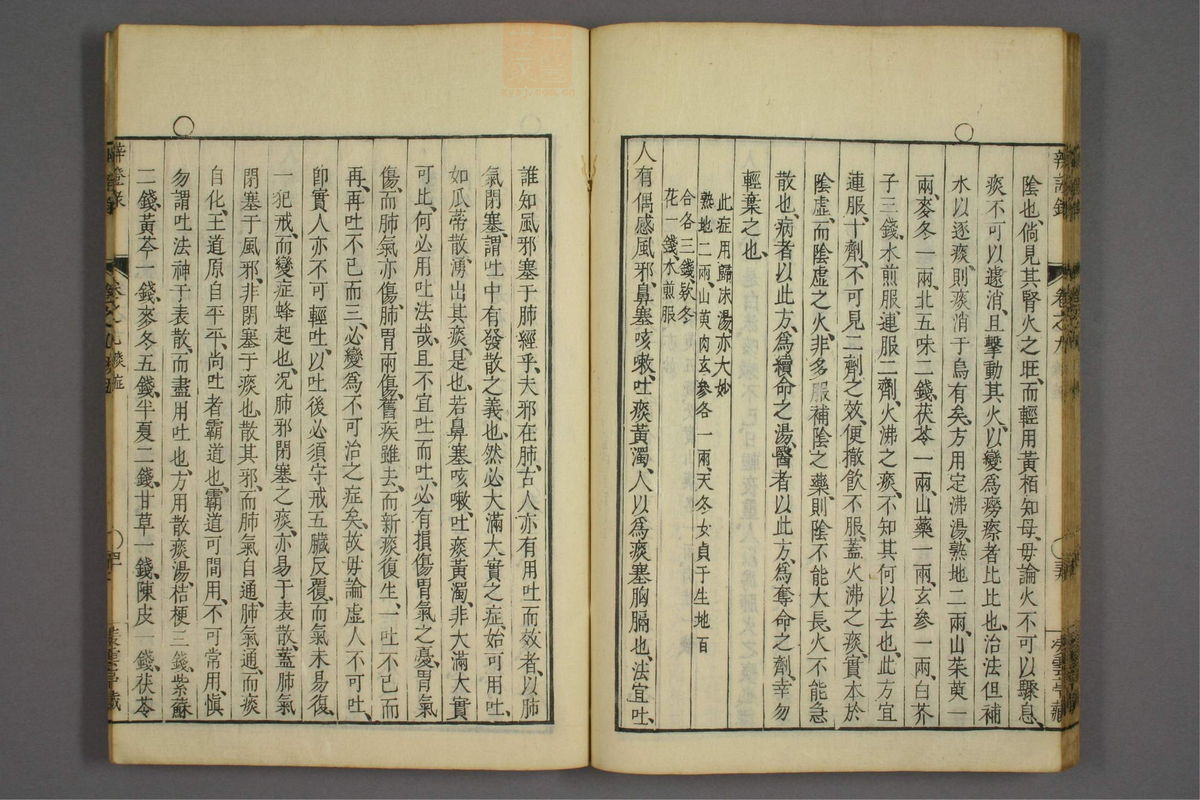 陰也、倘見其腎火之旺、而輕用黃栢知母、毋論火不可以驟息、
痰不可以遽消、且擊動其火、以變為癆瘵者比比也、治法但補
水以逐痰、則痰消于烏有矣、方用定沸湯、熟地二兩、山茱萸一
兩、麥冬一兩、北五味二錢、茯苓一兩、山藥一兩、玄參一兩、白芥
子三錢、水煎服、連服二劑、火沸之痰、不知其何以去也、此方宜
連服十劑、不可見二劑之效、便撤飲不服、蓋火沸之痰、實本於
陰虛、而陰虛之火、非多服補陰之藥、則陰不能大長、火不能急
散也、病者以此方、為續命之湯、醫者以此方、為奪命之劑、幸勿
輕棄之也、
此症用歸沫湯亦大妙
熟地二兩、山萸肉玄參各一兩、天冬女貞子生地百
合各三錢、欵冬
花一錢、水煎服
人有偶感風邪、鼻塞咳嗽、吐痰黃濁、人以為痰塞胸膈也、法宜吐、
誰知風邪塞于肺經乎、夫邪在肺、古人亦有用吐而效者、以肺
氣閉塞、謂吐中有發散之義也、然必大滿大實之症、始可用吐、
如瓜蒂散、湧出其痰、是也、若鼻塞咳嗽、吐痰黃濁、非大滿大實
可比、何必用吐法哉、且不宜吐而吐、必有損傷胃氣之憂、胃氣
傷、而肺氣亦傷、肺胃兩傷、舊疾雖去、而新痰復生、一吐不已而
再、再吐不已而三、必變為不可治之症矣、故毋論虛人不可吐、
卽實人亦不可輕吐、以吐後必須守戒、五臟反覆、而氣未易復、
一犯戒、而變症蜂起也、况肺邪閉塞之痰、亦易于表散、蓋肺氣
閉塞于風邪、非閉塞于痰也、散其邪、而肺氣自通、肺氣通、而痰
自化、王道原自平平、尚吐者霸道也、霸道可間用、不可常用、慎
勿謂吐法神于表散、而盡用吐也、方用散痰湯、桔梗三錢、紫蘇
二錢、黃芩一錢、麥冬五錢、半夏二錢、甘草一錢、陳皮一錢、茯苓